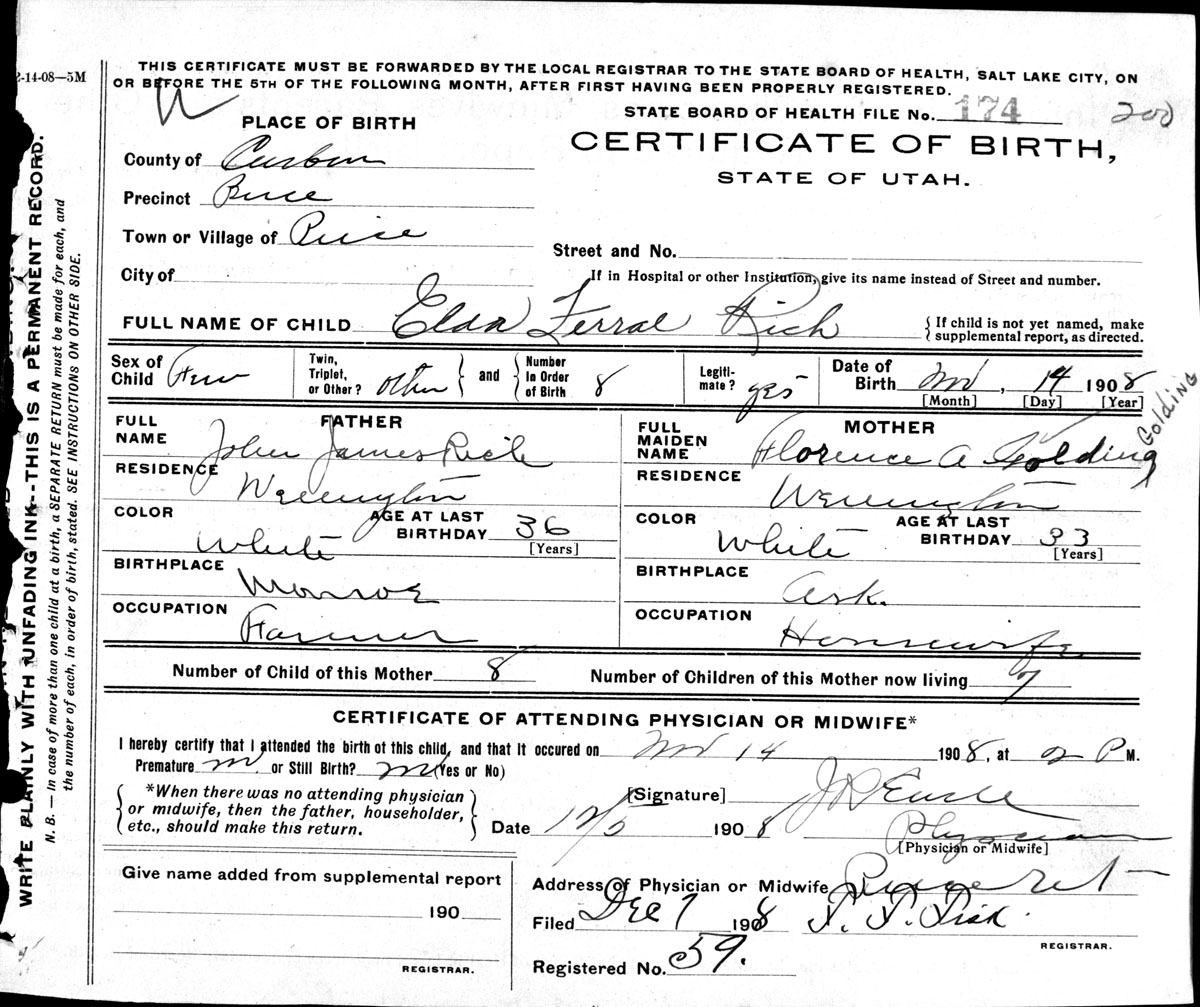 2-14-08—5M
THIS CERTIFICATE MUST BE FORWARDED BY THE LOCAL REGISTRAR TO THE STATE BOARD OF HEALTH, SALT LAKE CITY, ON
OR BEFORE THE 5TH OF THE FOLLOWING MONTH, AFTER FIRST HAVING BEEN PROPERLY REGISTERED.
STATE BOARD OF HEALTH FILE No. 174 200
PLACE OF BIRTH
CERTIFICATE OF BIRTH,
STATE OF UTAH.
County of Carbon
Precinct Price
Town or Village of Price
Street and No.
City of
If in Hospital or other Institution, give its name instead of Street and number.
FULL NAME OF CHILD Elda Ferral Rich
{ If child is not yet named, make
supplemental report, as directed.
Sex of Child Fem
Twin, Triplet, or Other? other } and { Number In Order of Birth 8
Legiti- mate? yes
Date of Birth Nov, 14 1908
[Month] [Day] [Year]
FATHER
FULL NAME John James Rich
RESIDENCE Wellington
COLOR White
AGE AT LAST BIRTHDAY 36
[Years]
BIRTHPLACE Monroe
OCCUPATION Farmer
MOTHER
FULL MAIDEN NAME Florence A Golding
Golding
RESIDENCE Wellington
COLOR White
AGE AT LAST BIRTHDAY 33
[Years]
BIRTHPLACE Ark.
OCCUPATION Housewife
Number of Child of this Mother 8
Number of Children of this Mother now living 7
CERTIFICATE OF ATTENDING PHYSICIAN OR MIDWIFE*
I hereby certify that I attended the birth of this child, and that it occured on Nov 14 1908, at 2 P M.
Premature no or Still Birth? no (Yes or No)
{ *When there was no attending physician
or midwife, then the father, householder,
etc., should make this return. }
[Signature]
Date 12/5 1908
Physician
[Physician or Midwife]
Give name added from supplemental report
190
REGISTRAR.
Address of Physician or Midwife
Filed Dec 7 1908
REGISTRAR.
Registered No. 59.
WRITE PLAINLY WITH UNFADING INK--THIS IS A PERMANENT RECORD.
N. B. — In case of more than one child at a birth, a SEPARATE RETURN must be made for each, and
the number of each, in order of birth, stated. SEE INSTRUCTIONS ON OTHER SIDE.